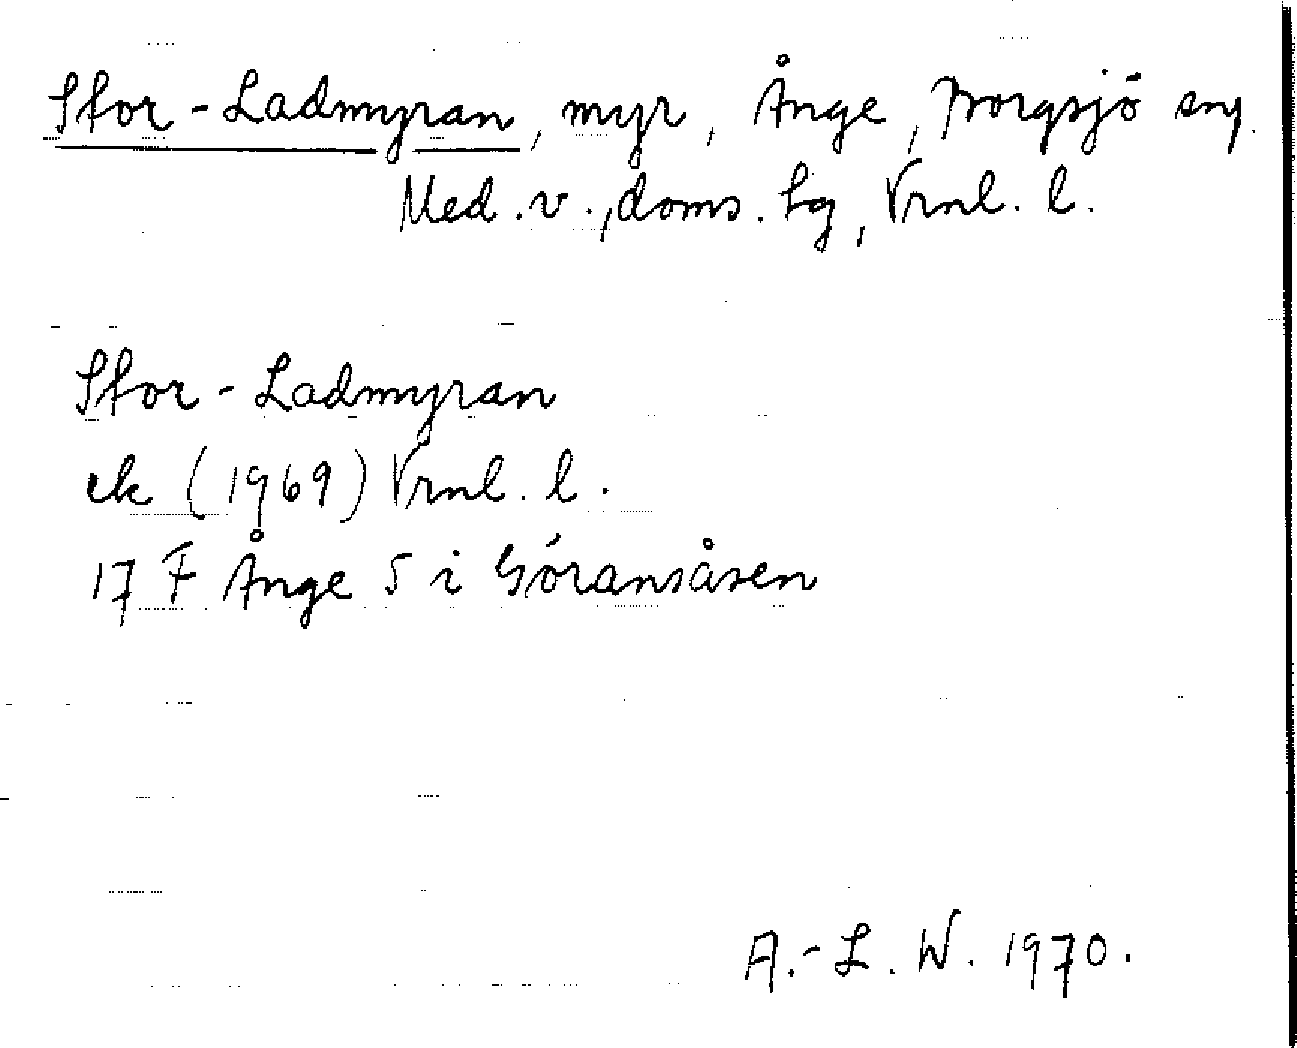 Stor-Ladmyran, myr, Ånge, Borgsjö sn,
Med. v., doms. hg, Vrnl. l.
Stor-Ladmyran
ek (1969) Vrnl. l.
17 F Ånge 5 i Göransåsen
A.-L. W. 1970.